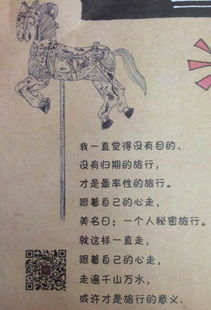 我一直觉得没有目的、
没有归期的旅行，
才是最率性的旅行。
跟着自己的心走，
美名曰：一个人秘密旅行。
就这样一直走，
跟着自己的心走，
走遍千山万水，
或许才是旅行的意义．